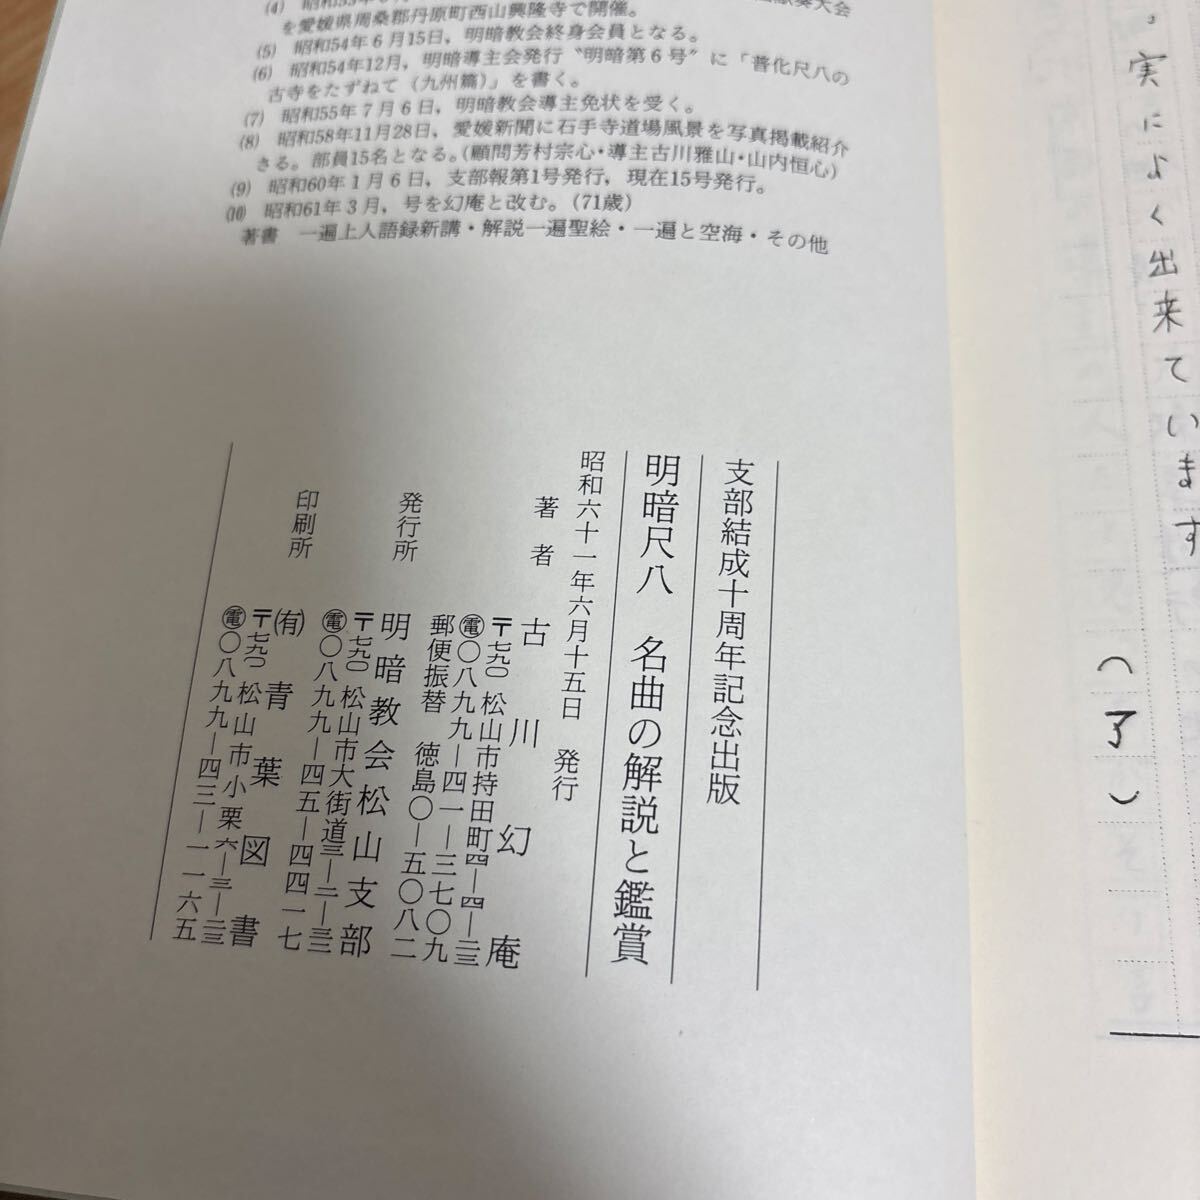 (4)
を愛媛県周桑郡丹原町西山興隆寺で開催。
(5) 昭和54年6月15日，明暗教会終身会員となる。
(6) 昭和54年12月，明暗導主会発行〝明暗第6号〞に「普化尺八の
古寺をたずねて（九州篇）」を書く。
(7) 昭和55年7月6日，明暗教会導主免状を受く。
(8) 昭和58年11月28日，愛媛新聞に石手寺道場風景を写真掲載紹介
さる。部員15名となる。（顧問芳村宗心・導主古川雅山・山内恒心）
(9) 昭和60年1月6日，支部報第1号発行，現在15号発行。
(10) 昭和61年3月，号を幻庵と改む。（71歳）
著書 一遍上人語録新講・解説一遍聖絵・一遍と空海・その他
支部結成十周年記念出版
明暗尺八 名曲の解説と鑑賞
昭和六十一年六月十五日 発行
著者 古川幻庵
〒七九〇 松山市持田町四―四―二三
電〇八九九―四一―三七〇九
郵便振替 徳島〇―五〇八二
発行所 明暗教会松山支部
〒七九〇 松山市大街道三―二―二三
電〇八九九―四五―四四一七
印刷所 ㈲青葉図書
〒七九〇 松山市小栗六―三―二三
電〇八九九―四三―一一六五
，実によく出来ています
（了）